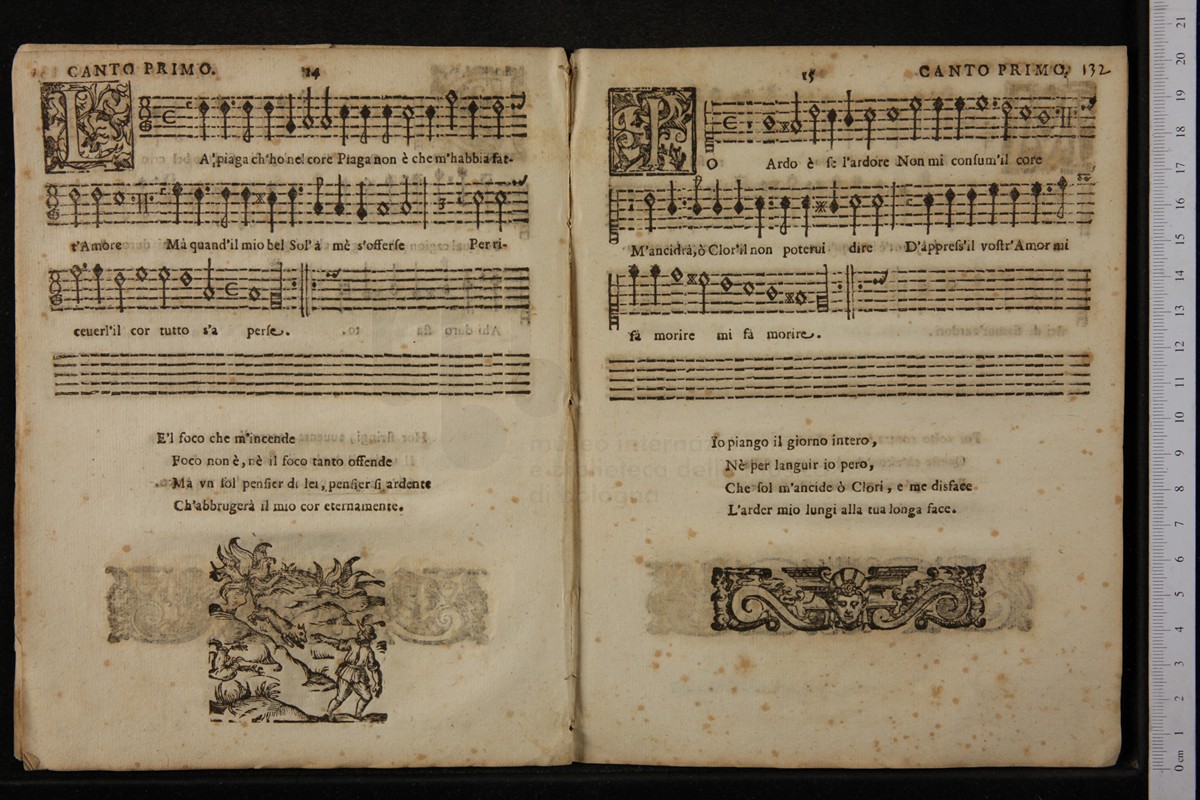 CANTO PRIMO.
14
L
A piaga ch'ho nel core Piaga non è che m'habbia fat-
t'Amore Mà quand'il mio bel Sol' à mè s'offerse Per ri-
ceuerl'il cor tutto s'a perse.
E'l foco che m'incende
Foco non è, nè il foco tanto offende
Mà vn sol pensier di lei, pensier si ardente
Ch'abbrugerà il mio cor eternamente.
15
CANTO PRIMO.
132
R
O Ardo è se l'ardore Non mi consum'il core
M'ancidrà, ò Clor'il non poterui dire D'appress'il vostr'Amor mi
fà morire mi fà morire.
Io piango il giorno intero,
Nè per languir io pero,
Che sol m'ancide ò Clori, e me disface
L'arder mio lungi alla tua longa face.
museo internaz
e biblioteca della
di bologna
21
20
19
18
17
16
15
14
13
12
11
10
9
8
7
6
5
4
3
2
1
0 cm